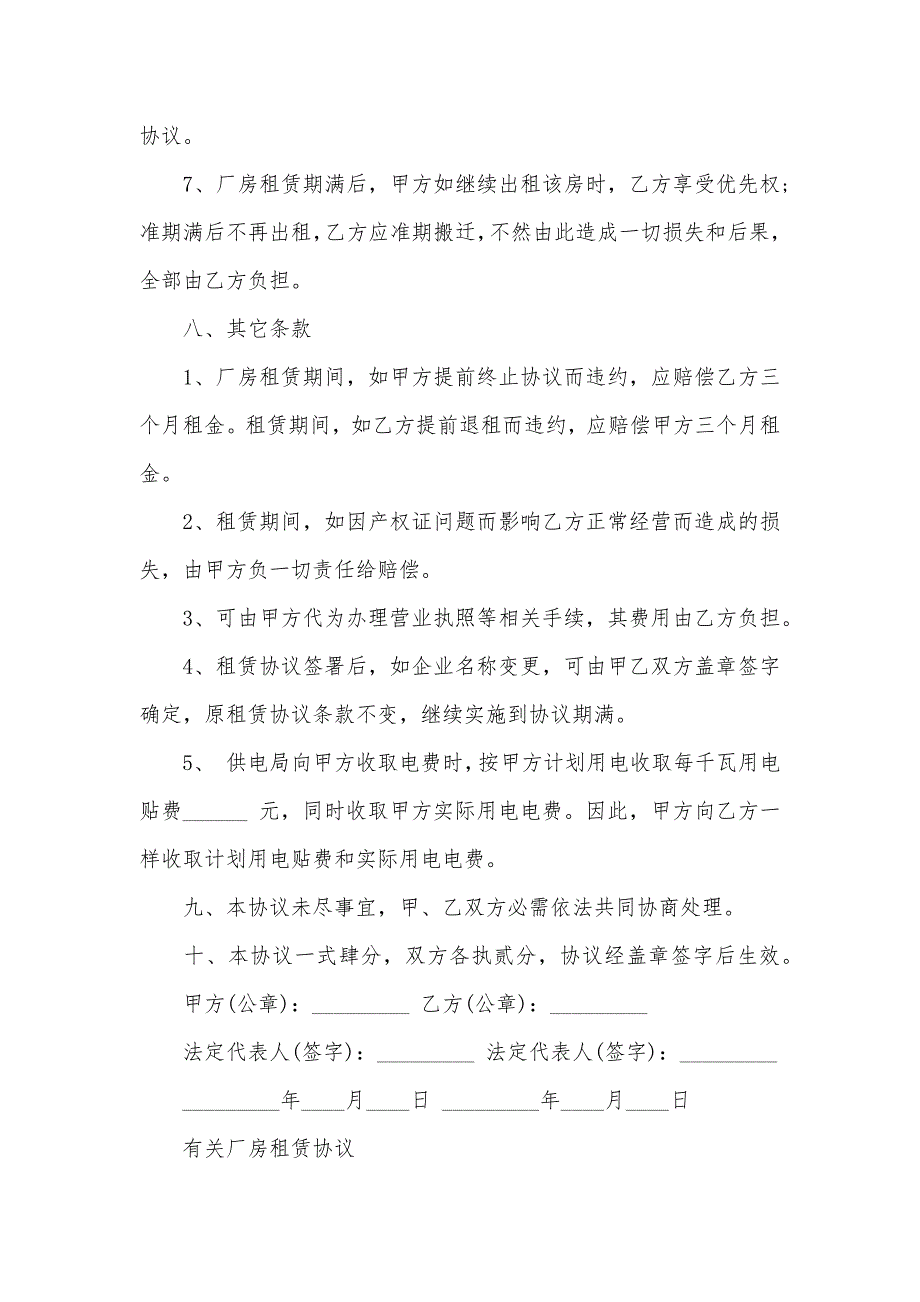 协议。
7、厂房租赁期满后，甲方如继续出租该房时，乙方享受优先权;
准期满后不再出租，乙方应准期搬迁，不然由此造成一切损失和后果，
全部由乙方负担。
八、其它条款
1、厂房租赁期间，如甲方提前终止协议而违约，应赔偿乙方三
个月租金。租赁期间，如乙方提前退租而违约，应赔偿甲方三个月租
金。
2、租赁期间，如因产权证问题而影响乙方正常经营而造成的损
失，由甲方负一切责任给赔偿。
3、可由甲方代为办理营业执照等相关手续，其费用由乙方负担。
4、租赁协议签署后，如企业名称变更，可由甲乙双方盖章签字
确定，原租赁协议条款不变，继续实施到协议期满。
5、 供电局向甲方收取电费时，按甲方计划用电收取每千瓦用电
贴费______ 元，同时收取甲方实际用电电费。因此，甲方向乙方一
样收取计划用电贴费和实际用电电费。
九、本协议未尽事宜，甲、乙双方必需依法共同协商处理。
十、本协议一式肆分，双方各执贰分，协议经盖章签字后生效。
甲方(公章)：_________ 乙方(公章)：_________
法定代表人(签字)：_________ 法定代表人(签字)：_________
_________年____月____日 _________年____月____日
有关厂房租赁协议